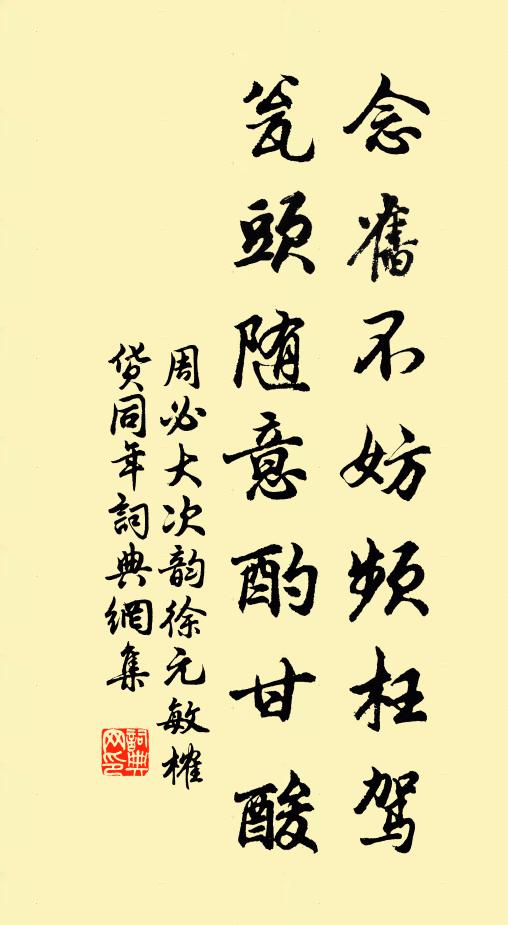 念舊不妨頻枉驾
瓮頭随意酌甘酸
周必大次韵徐元敏榷
货同年詞典網集
詞典
网印